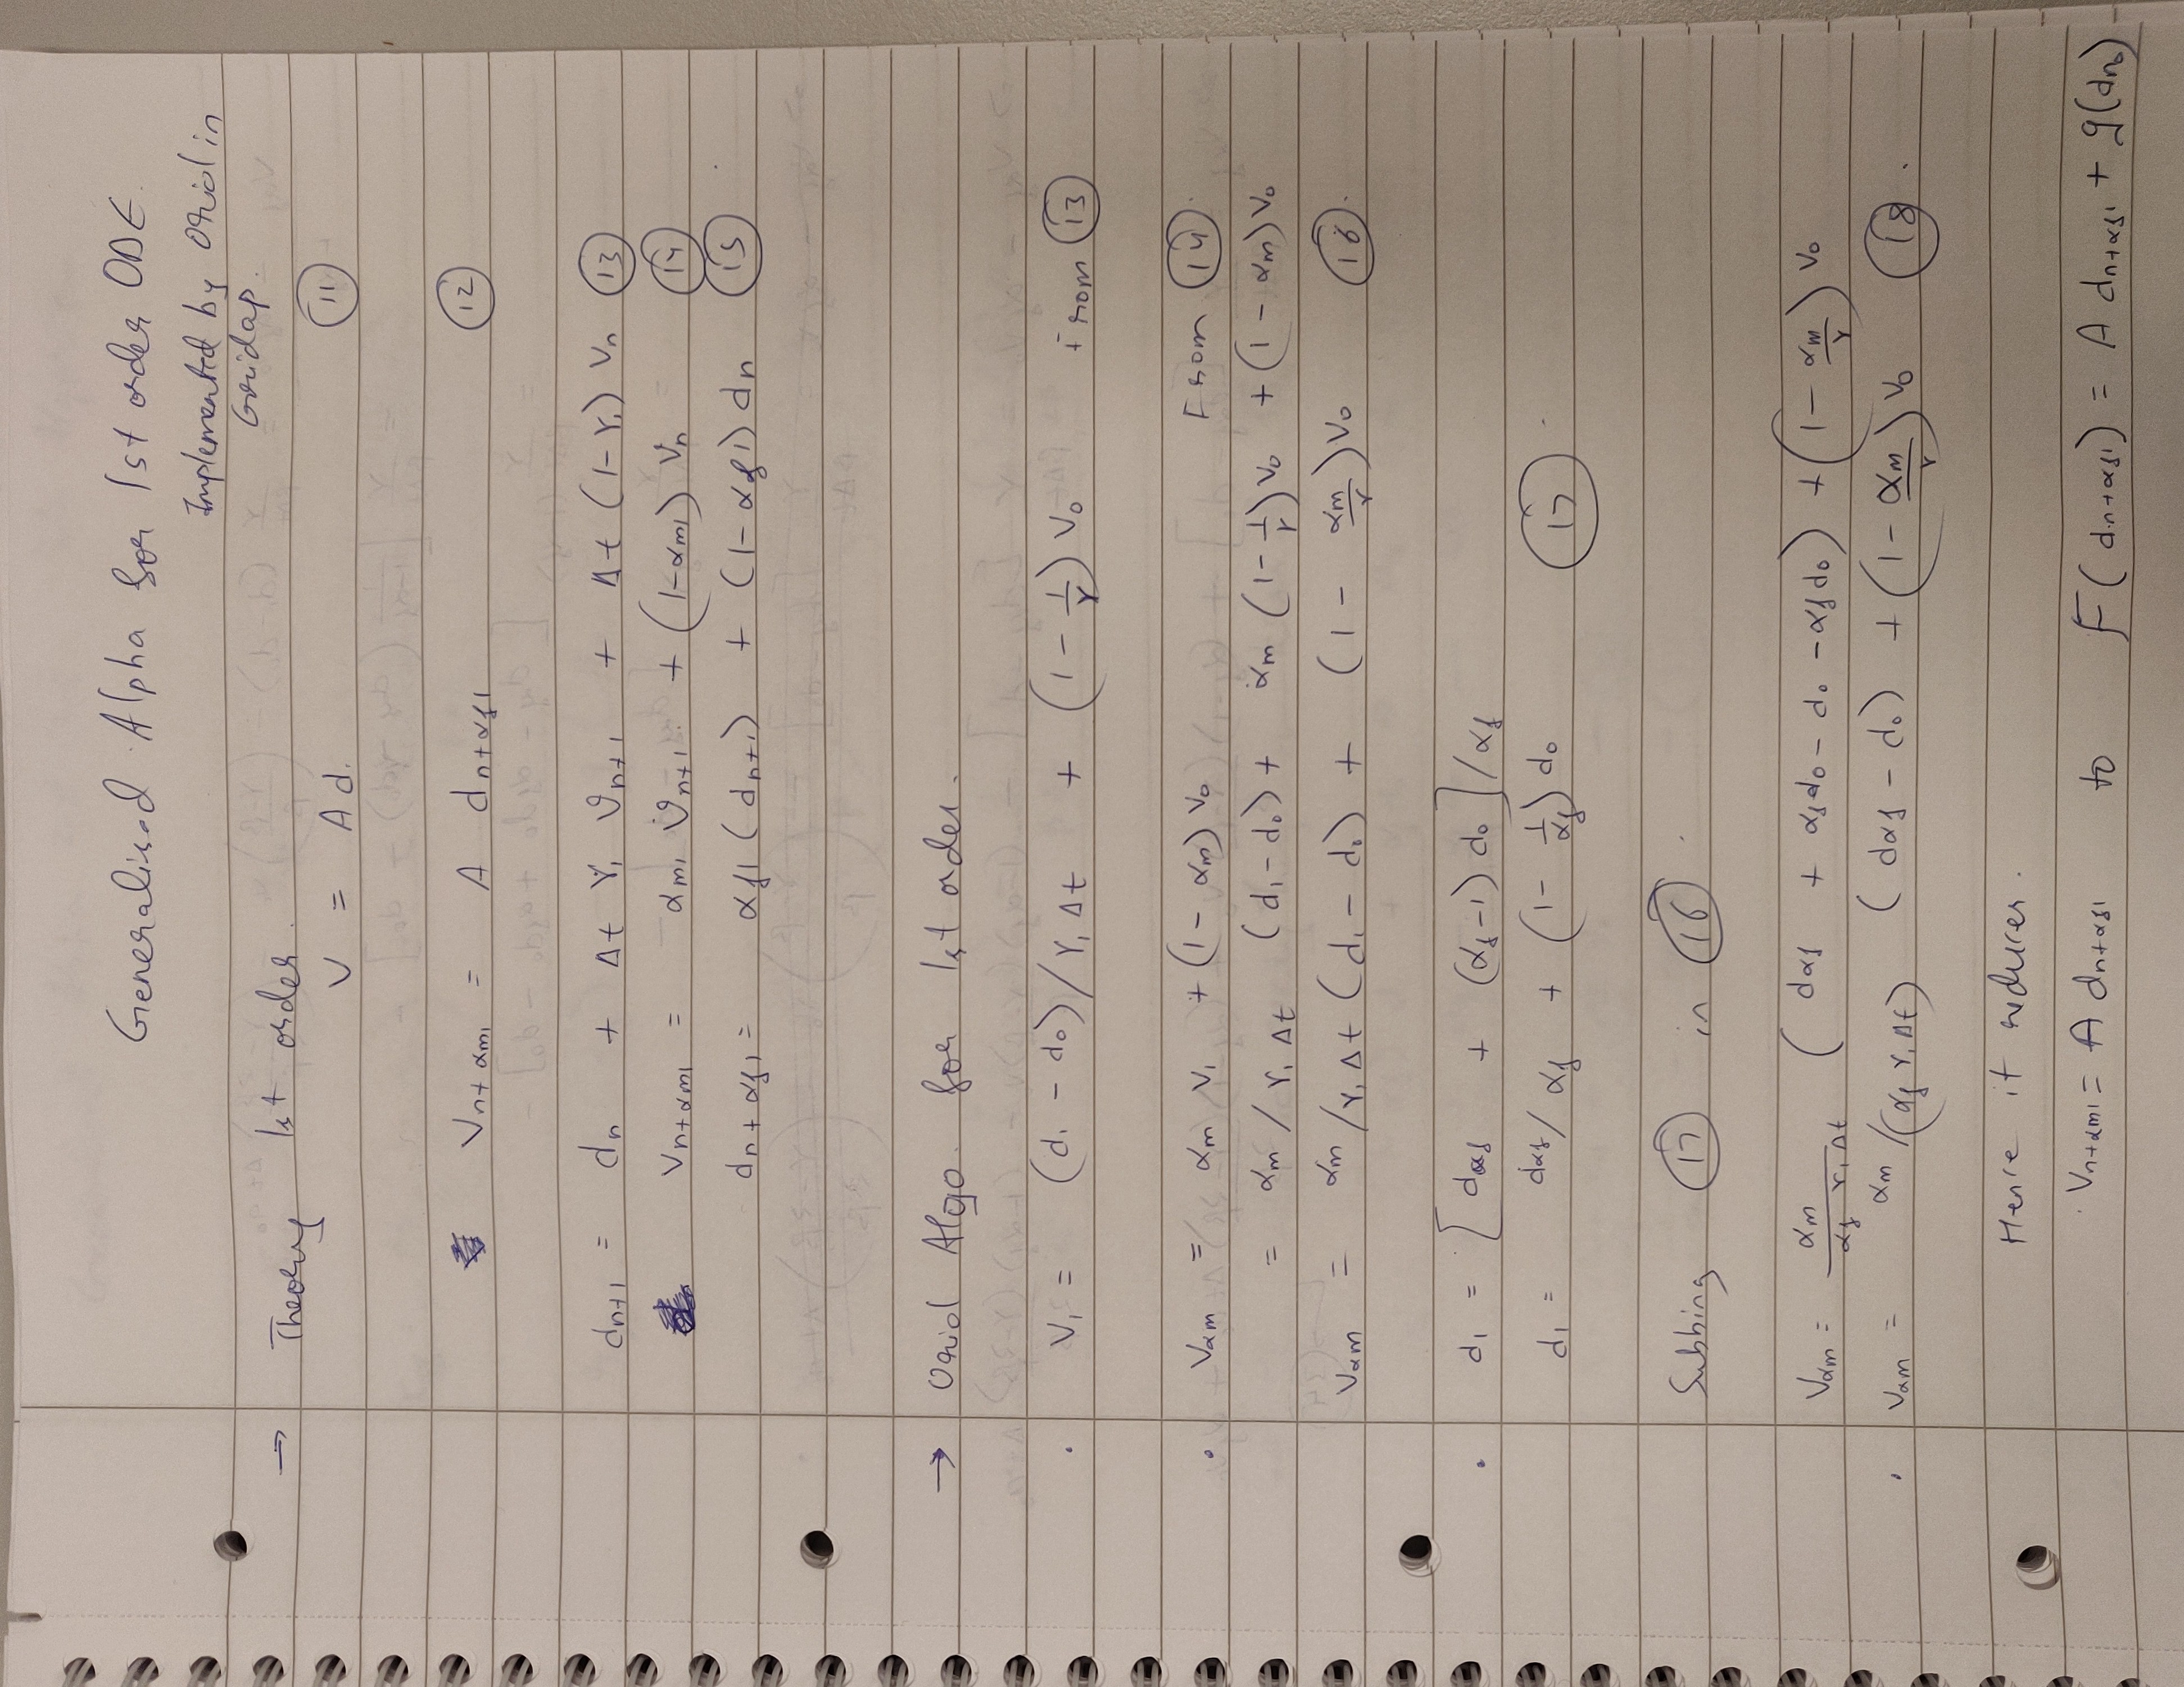 Generalised Alpha for 1st order ODE.
Implemented by Oriol in
Gridap.
→ Theory 1st order.
V = A d. (11)
V_{n+αm1} = A d_{n+αf1} (12)
d_{n+1} = d_n + Δt γ_1 v_{n+1} + Δt (1-γ_1) V_n (13)
V_{n+αm1} = α_{m1} v_{n+1} + (1-α_{m1}) V_n (14)
d_{n+αf1} = α_{f1} (d_{n+1}) + (1-α_{f1}) d_n (15)
→ Oriol Algo. for 1st order.
. V_1 = (d_1 - d_0)/γ_1 Δt + (1 - 1/γ) V_0 From (13)
. V_{αm} = α_m V_1 + (1 - α_m) V_0 From (14).
= α_m / γ_1 Δt (d_1 - d_0) + α_m (1 - 1/γ) V_0 + (1 - α_m) V_0
V_{αm} = α_m / γ_1 Δt (d_1 - d_0) + (1 - α_m/γ) V_0 (16).
. d_1 = [d_{αf} + (α_f - 1) d_0] / α_f
d_1 = d_{αf} / α_f + (1 - 1/α_f) d_0 (17).
Subbing (17) in (16).
V_{αm} = α_m/(α_f γ_1 Δt) (d_{αf} + α_f d_0 - d_0 - α_f d_0) + (1 - α_m/γ) V_0
. V_{αm} = α_m / (α_f γ_1 Δt) (d_{αf} - d_0) + (1 - α_m/γ) V_0 (18).
Hence it reduces.
V_{n+αm1} = A d_{n+αf1} to F(d_{n+αf1}) = A d_{n+αf1} + g(d_{n0})